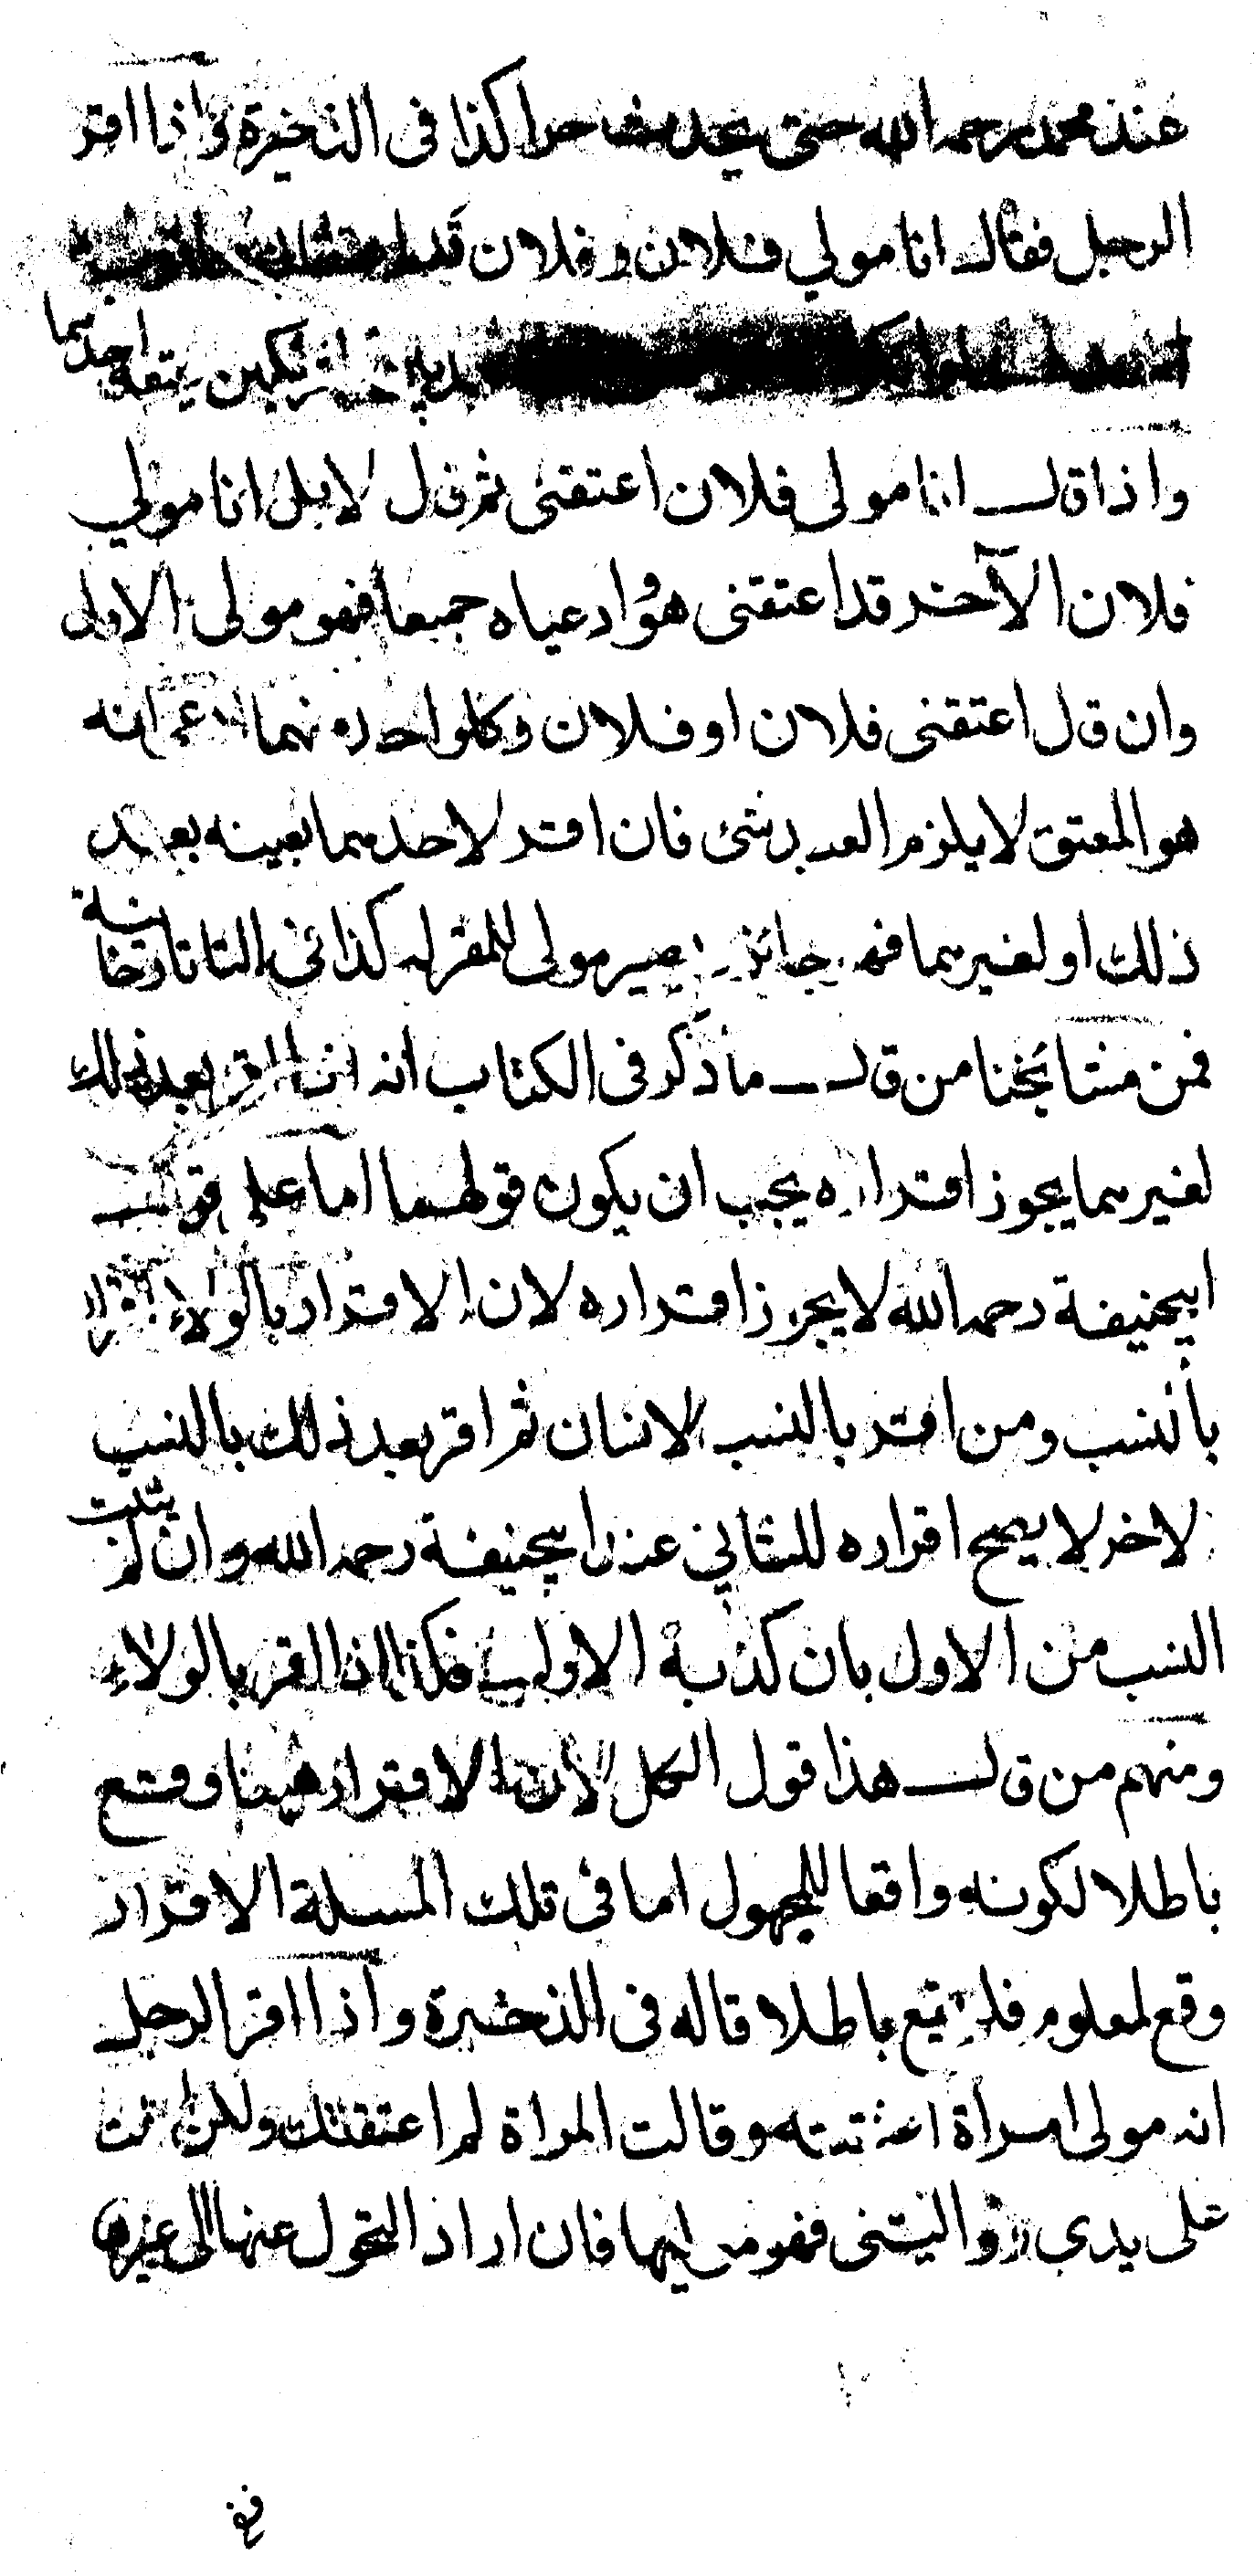 عند محمد رحمه الله حتى يحدث حرا كذا في الذخيرة واذا اقر
الرجل فقال انا مولى فلان وفلان قد
احدهما
واذا قال انا مولى فلان اعتقنى ثم قال لا بل انا مولى
فلان الآخر قد اعتقنى هو وادعياه جميعا فهو مولى الاول
وان قال اعتقنى فلان او فلان وكل واحد منهما ادعى انه
هو المعتق لا يلزم العبد شئ فان اقر لاحدهما بعينه بعد
ذلك او لغيرهما فهو جائز يصير مولى للمقر له كذا في التاتارخانية
فمن مشائخنا من قال ما ذكر في الكتاب انه اذا اقر بعد ذلك
لغيرهما يجوز اقراره يجب ان يكون قولهما اما على قول
ابيحنيفة رحمه الله لا يجوز اقراره لان الاقرار بالولاء
بالنسب ومن اقر بالنسب لانسان ثم اقر بعد ذلك بالنسب
لاخر لا يصح اقراره للثاني عند ابيحنيفة رحمه الله وان لم يثبت
النسب من الاول بان كذبه الاول فكذا اذا اقر بالولاء
ومنهم من قال هذا قول الكل لان الاقرار ههنا وقع
باطلا لكونه واقعا للمجهول اما في تلك المسلة الاقرار
وقع لمعلوم فلم يقع باطلا قاله في الذخيرة واذا اقر الرجل
انه مولى امراة اعتقته وقالت المراة لم اعتقتك ولكن اسلمت
على يدي وواليتنى فهو مولاها فان اراد التحول عنها الى غيرها